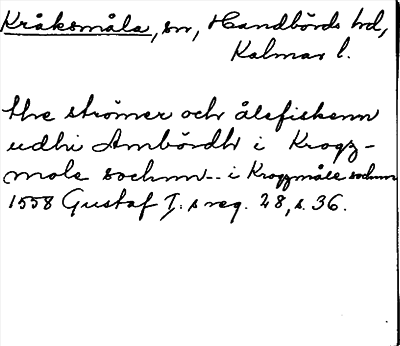 Kråksmåla, sn, Handbörds hd,
Kalmar l.
the strömer och ålefiskenn
udhi Ambördh i Krogz-
mole sochnn.. i Krogzmåle sochnn
1558 Gustaf I. s reg. 28, s. 36.